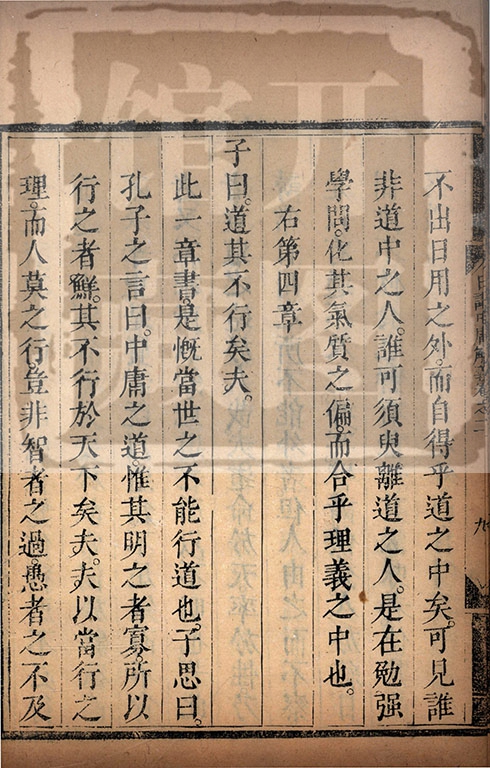 不出日用之外。而自得乎道之中矣。可見誰
非道中之人。誰可須臾離道之人。是在勉强
學問。化其氣質之偏。而合乎理義之中也。
右第四章
子曰。道其不行矣夫。
此一章書。是慨當世之不能行道也。子思曰。
孔子之言曰。中庸之道。惟其明之者寡。所以
行之者鮮。其不行於天下矣夫。夫以當行之
理。而人莫之行。豈非智者之過。愚者之不及